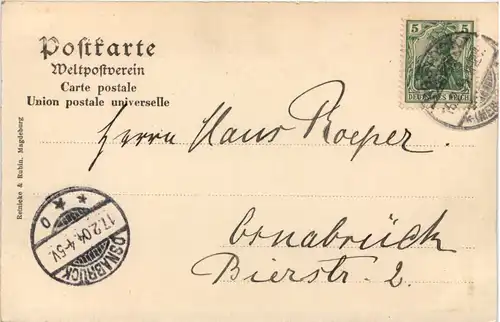 Postkarte
Weltpostverein
Carte postale
Union postale universelle
5 5
DEUTSCHES REICH
Herrn Hans Roeper.
Osnabrück
Bierstr. 2.
Reinicke & Rubin, Magdeburg
OSNABRÜCK
17.2.04.4-5V.